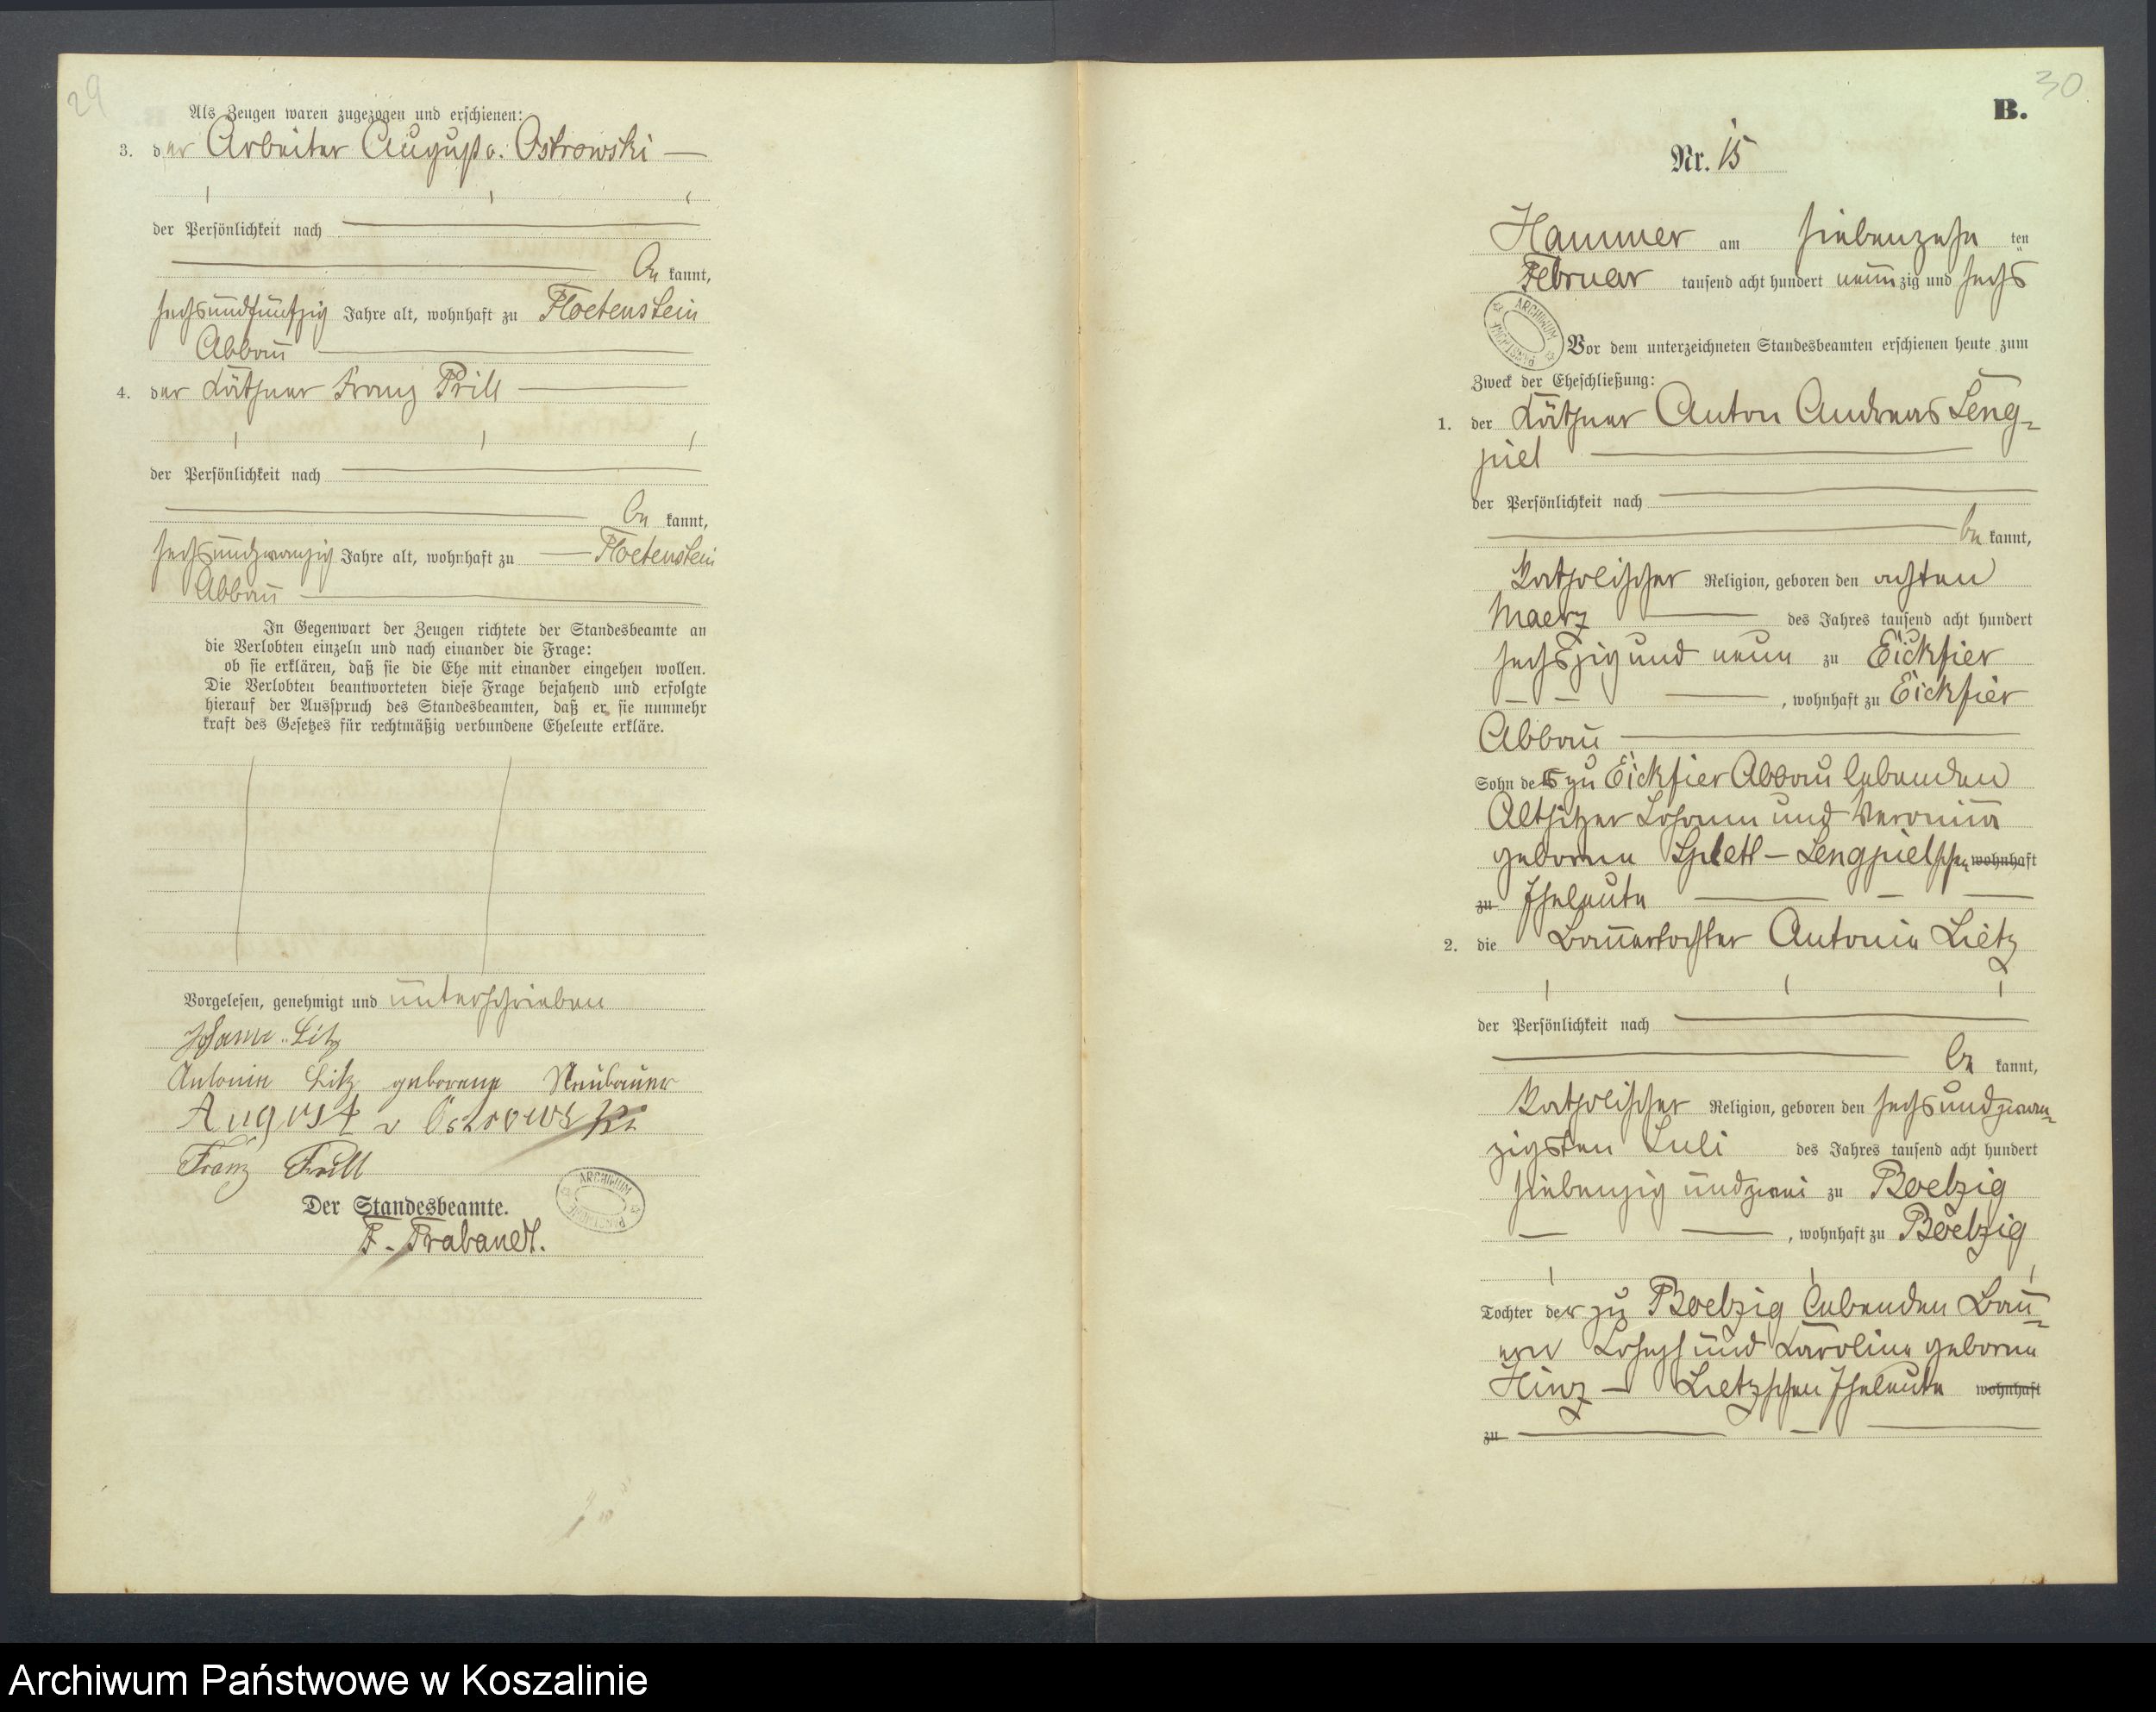 29
Als Zeugen waren zugezogen und erschienen:
3. der Arbeiter August v. Ostrowski —
der Persönlichkeit nach
bekannt,
sechsundfünfzig Jahre alt, wohnhaft zu Floetenstein
Abbau
4. der Käthner Franz Prill
der Persönlichkeit nach
bekannt,
sechsundzwanzig Jahre alt, wohnhaft zu — Floetenstein
Abbau
In Gegenwart der Zeugen richtete der Standesbeamte an
die Verlobten einzeln und nach einander die Frage:
ob sie erklären, daß sie die Ehe mit einander eingehen wollen.
Die Verlobten beantworteten diese Frage bejahend und erfolgte
hierauf der Ausspruch des Standesbeamten, daß er sie nunmehr
kraft des Gesetzes für rechtmäßig verbundene Eheleute erkläre.
Vorgelesen, genehmigt und unterschrieben
Johann Litz
Antonie Litz geborene Neubauer
August v Ostrowski
Franz Prill
Der Standesbeamte.
F. Trabandt.
ARCHIWUM PAŃSTWOWE
30
B.
Nr. 15
Hammer am siebenzehn ten
Februar tausend acht hundert neunzig und sechs
ARCHIWUM PAŃSTWOWE
Vor dem unterzeichneten Standesbeamten erschienen heute zum
Zweck der Eheschließung:
1. der Käthner Anton Andreas Leng-
piel
der Persönlichkeit nach
bekannt,
katholischer Religion, geboren den achten
Maerz des Jahres tausend acht hundert
sechszig und neun zu Eickfier
, wohnhaft zu Eickfier
Abbau
Sohn des zu Eickfier Abbau lebenden
Altsitzer Johann und Veronika
geborene Splett – Lengpielschen wohnhaft
zu Eheleute
2. die Bauertochter Antonie Lietz
der Persönlichkeit nach
bekannt,
katholischer Religion, geboren den sechsundzwan-
zigsten Juli des Jahres tausend acht hundert
siebenzig und zwei zu Boelzig
, wohnhaft zu Boelzig
Tochter der zu Boelzig lebenden Bau-
ern Joseph und Karoline geborne
Hinz – Lietzschen Eheleute wohnhaft
zu
Archiwum Państwowe w Koszalinie